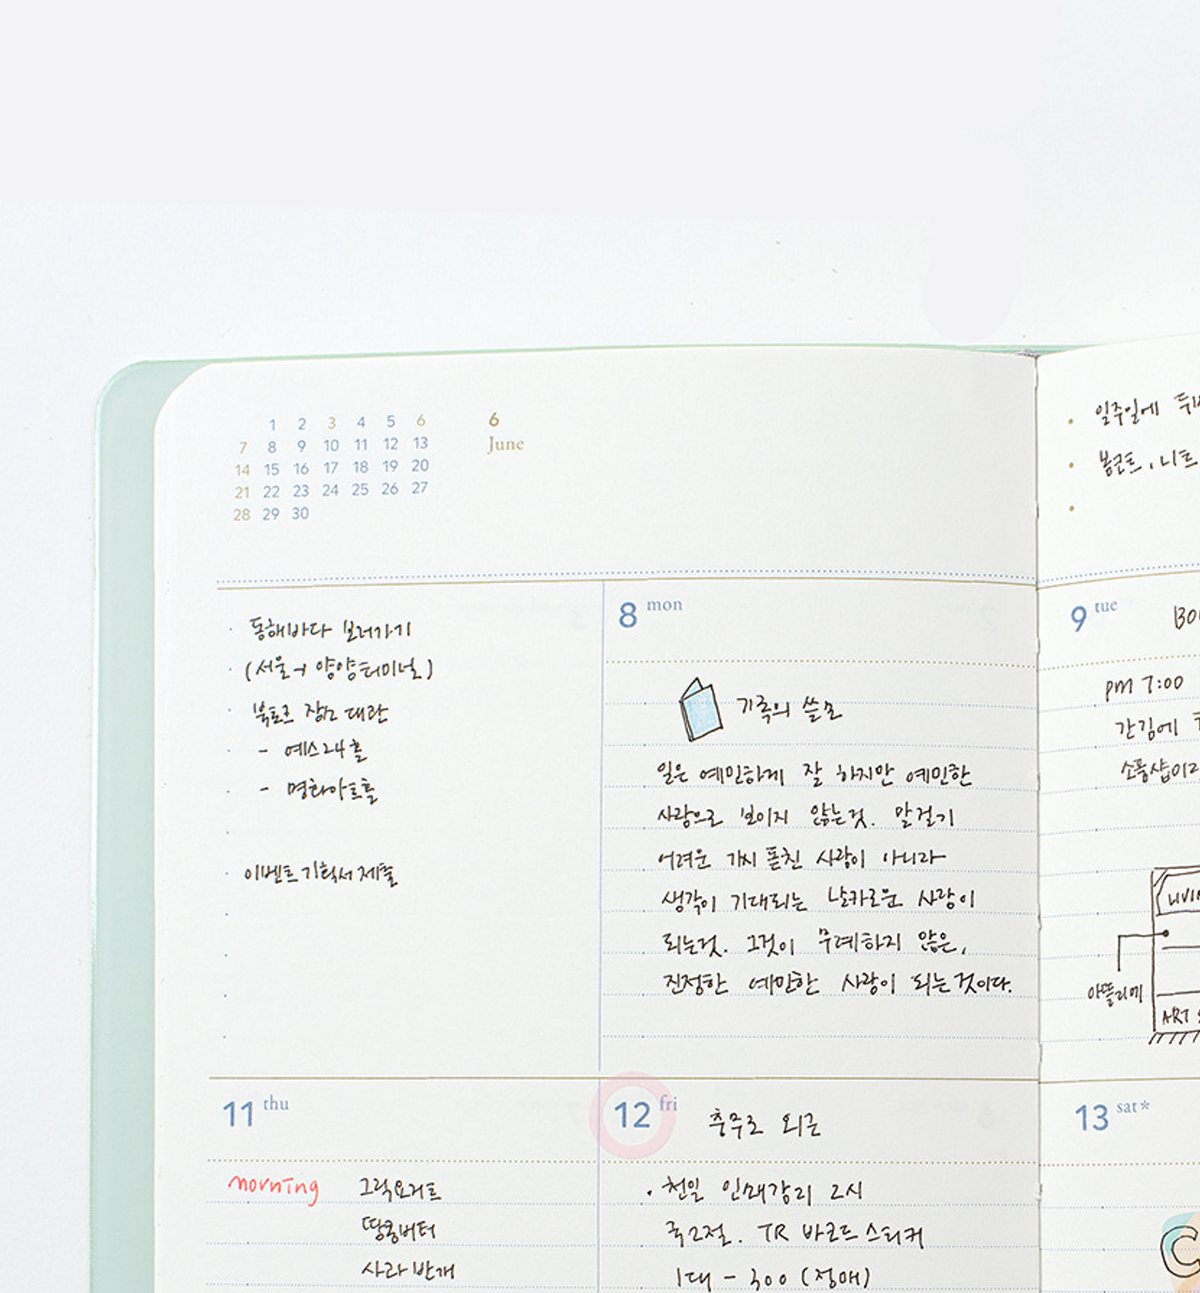 1 2 3 4 5 6
7 8 9 10 11 12 13
14 15 16 17 18 19 20
21 22 23 24 25 26 27
28 29 30
6
June
· 동해바다 보러가기
· (서울→양양터미널)
· 북토크 장소 대관
- 예스24홀
- 명화아트홀
· 이벤트기획서 제출
8 mon
기록의 쓸모
일은 예민하게 잘 하지만 예민한
사람으로 보이지 않는것. 말걸기
어려운 가시 돋친 사람이 아니라
생각이 기대되는 날카로운 사람이
되는것. 그것이 무례하지 않은,
진정한 예민한 사람이 되는것이다.
· 일주일에
· 봉골트, 니트
9 tue
pm 7:00
간김에
소품샵이
아뜰리에
ART
11 thu
morning 그릭요거트
땅콩버터
사과 반개
12 fri 충무로 외근
· 천일 인쇄감리 2시
국2절. TR 바코드 스티커
1대 - 300 (정매)
13 sat*